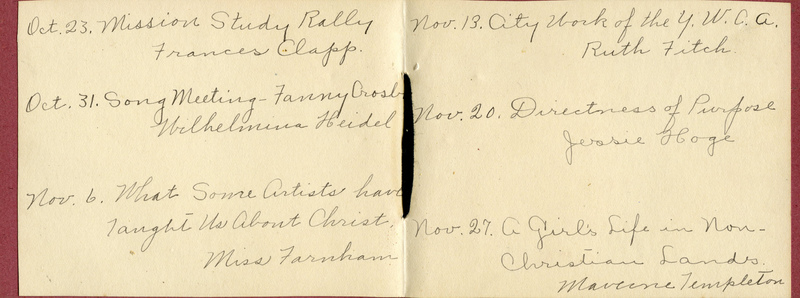 Oct. 23. Mission Study Rally
Frances Clapp.
Oct. 31. Song Meeting - Fanny Crosby
Wilhelmina Heidel
Nov. 6. What Some Artists have
Taught Us About Christ.
Miss Farnham
Nov. 13. City Work of the Y. W. C. A.
Ruth Fitch.
Nov. 20. Directness of Purpose
Jessie Hoge
Nov. 27. A Girl's Life in Non-
Christian Lands.
Maveene Templeton